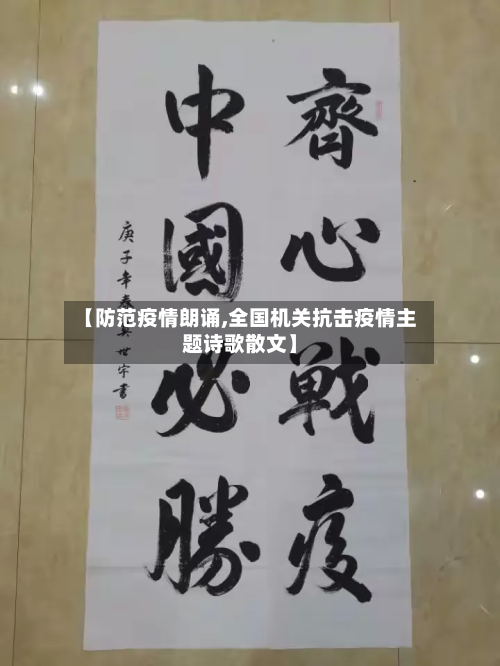 齊心戰疫
中國必勝
庚子年春吴世宇書
【防范疫情朗诵,全国机关抗击疫情主
题诗歌散文】